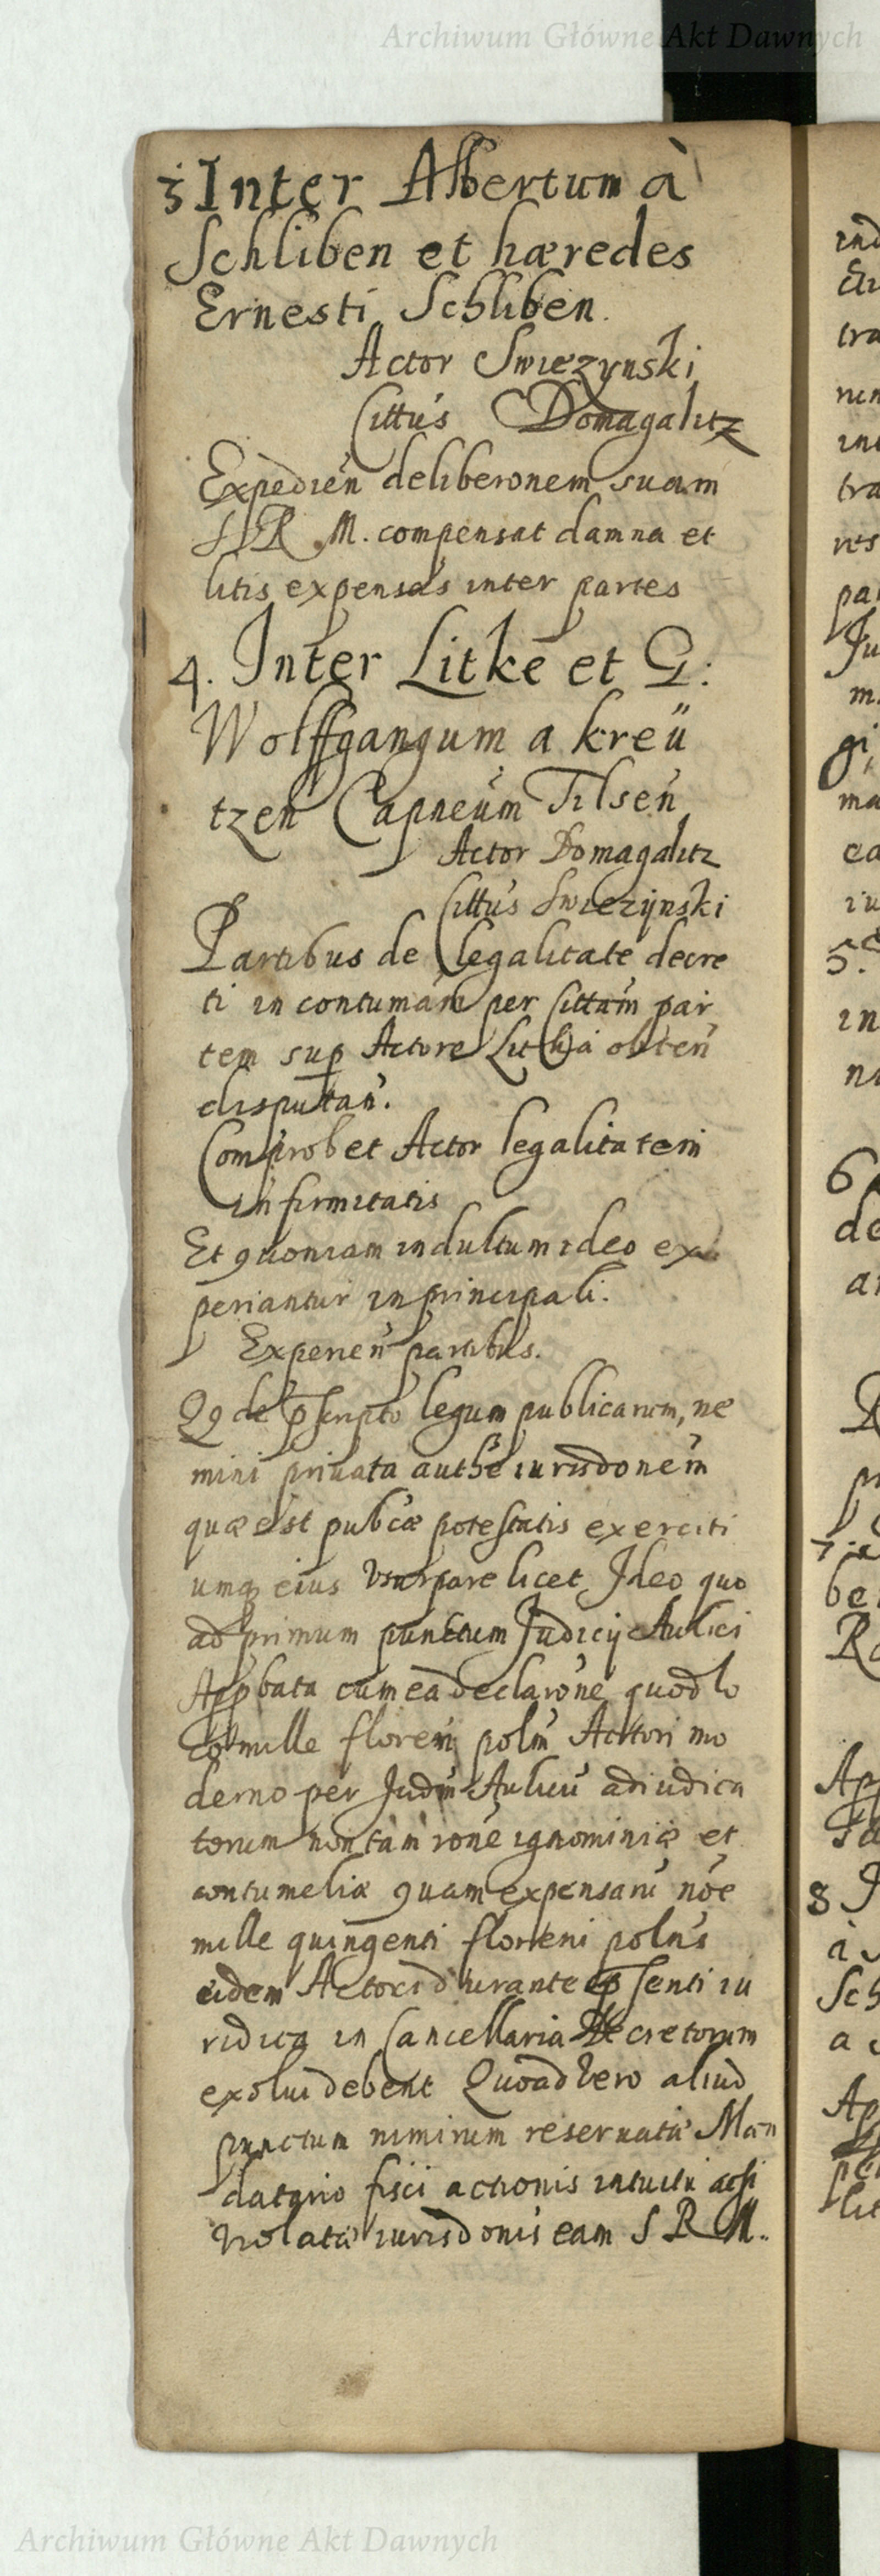 Archiwum Główne Akt Dawnych
3 Inter Albertum à
Schliben et hæredes
Ernesti Schliben.
Actor Swiezynski
Cittus Domagalitz
Expedien deliberonem suam
S R M. compensat damna et
litis expensas inter partes
4. Inter Litke et G:
Wolffgangum a kreü
tzen Capneum Tilsen
Actor Domagalitz
Cittus Swiezijnski
Partibus de legalitate decre
ti in contumam per Cittam par
tem sup Actore obten
disputan.
Comprobet Actor legalitatem
infirmitatis
Et quoniam indultum ideo ex
periantur in principali.
Experien partibus.
Qq de pscripto legum publicarum, ne
mini priuata authe iurisdonem
quæ est publcæ potestatis exerciti
umq eius vsurpare licet Ideo quo
ad primum punctum Judicij Aulici
Appbata cum ea declarone quod lo
co mille floren poln Actori mo
derno per Judm Aulicu adiudica
torum non tam rone ignominiæ et
contumeliæ quam expensaru noe
mille quingenti floreni polns
eidem Actori durante psenti iu
ridica in Cancellaria Decretorum
exolui debent Quoad vero aliud
punctum nimirum reseruatæ Man
datario fisci actionis intuitu
violatæ iurisdonis eam S R M.
ind
tra
num
ini
tra
res
par
Ju
m.
gi
ma
ea
iu
5.
in
na
6
de
an
pr
7
be
Ro
App
8 J
a
Sch
a
Ap
pe
lit
Archiwum Główne Akt Dawnych